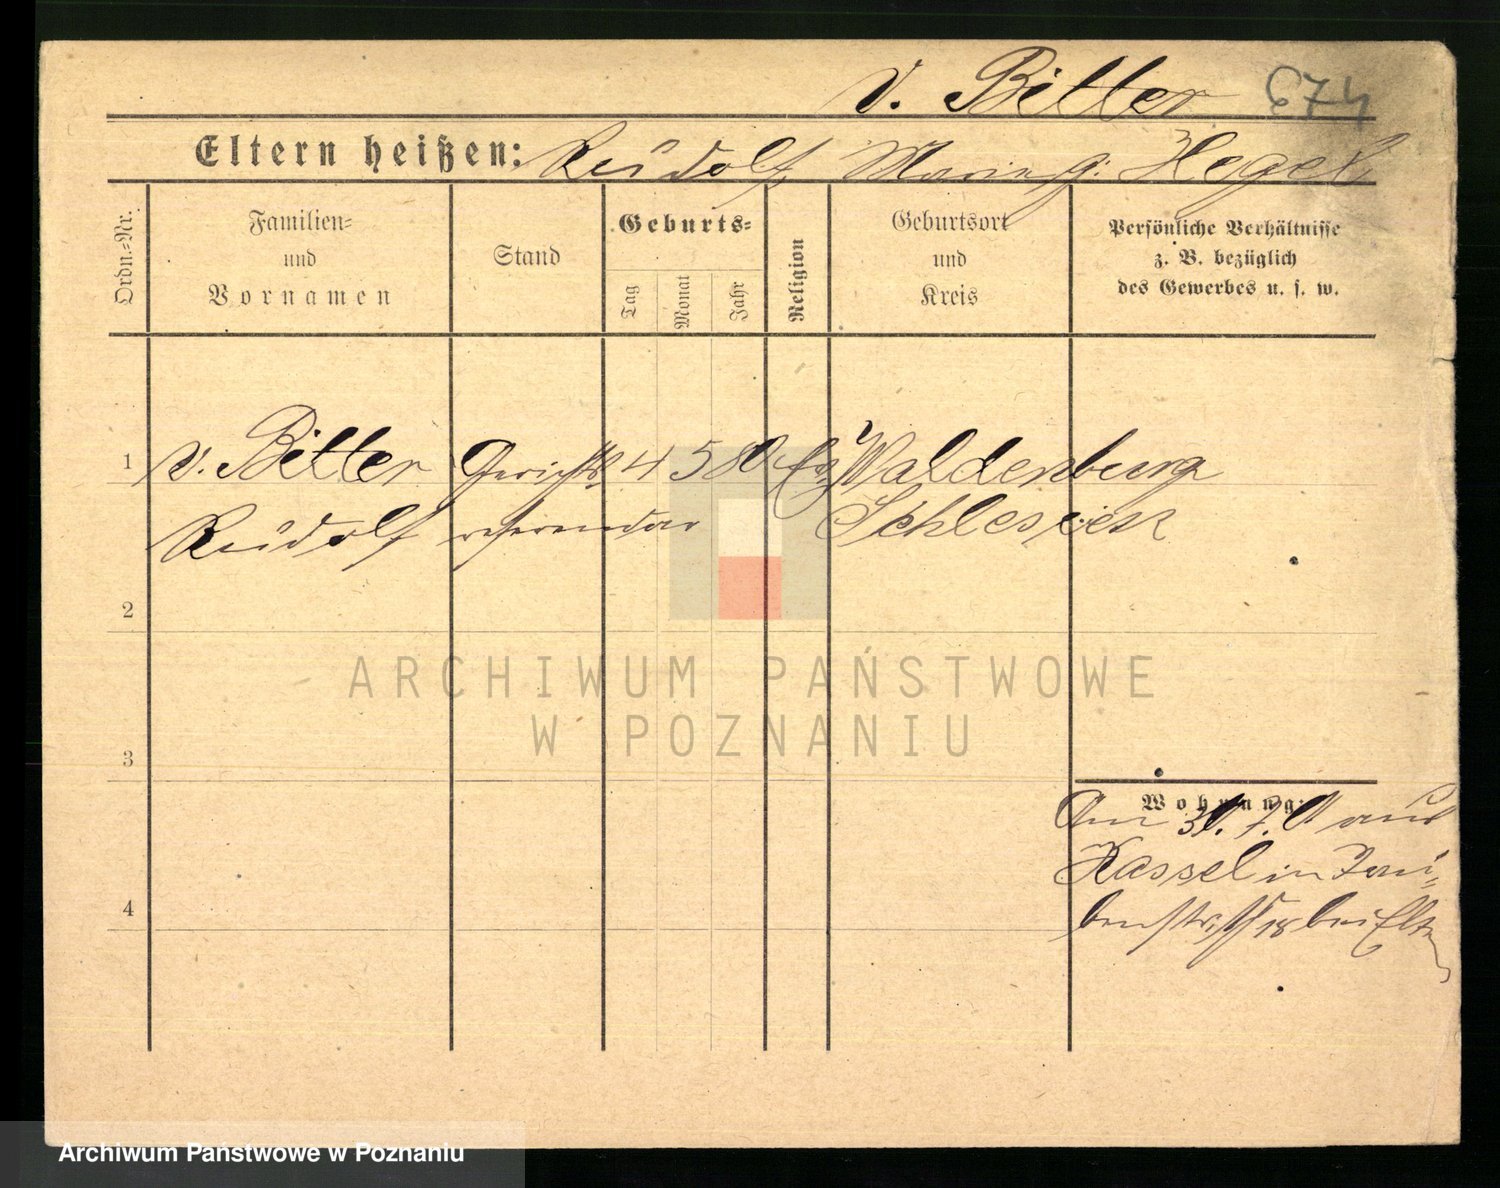 v. Bitter 674
Eltern heißen: Rudolf Marie g. Hegel
Ordn.=Nr.
Familien=
und
Vornamen
Stand
Geburts=
Tag
Monat
Jahr
Religion
Geburtsort
und
Kreis
Persönliche Verhältnisse
z. B. bezüglich
des Gewerbes u. s. w.
1 v. Bitter Gerichts 4 5 80 Ev. Waldenburg
Rudolf referendar Schlesien
2
3
ARCHIWUM PAŃSTWOWE
W POZNANIU
Wohnung:
Am 30. 7. 01 aus
Kassel in Tau=
benstr. 18 bei Elt
4
Archiwum Państwowe w Poznaniu